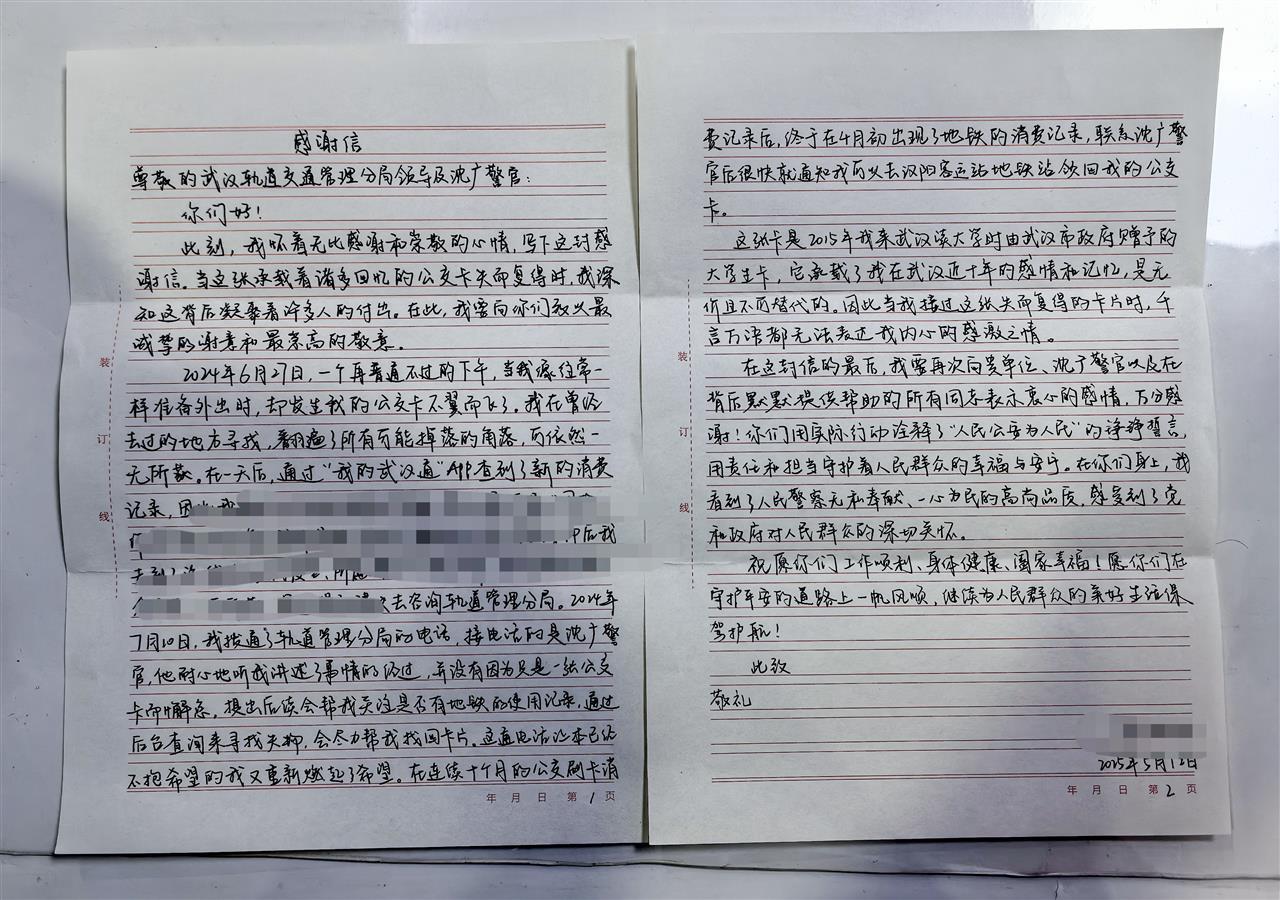 感谢信
尊敬的武汉轨道交通管理分局领导及沈广警官：
你们好！
此刻，我怀着无比感谢和崇敬的心情，写下这封感
谢信。当这张承载着诸多回忆的公交卡失而复得时，我深
知这背后凝聚着许多人的付出。在此，我要向你们致以最
诚挚的谢意和最崇高的敬意。
2024年6月27日，一个再普通不过的下午，当我像往常一
样准备外出时，却发生我的公交卡不翼而飞了。我在曾经
去过的地方寻找，翻遍了所有可能掉落的角落，而依然一
无所获。在一天后，通过“我的武汉通”APP查到了新的消费
记录，因
后我
去咨询轨道管理分局。2024年
7月10日，我拨通了轨道管理分局的电话，接电话的是沈广警
官，他耐心地听我讲述了事情的经过，并没有因为只是一张公交
卡而懈怠，提出后续会帮我关注是否有地铁的使用记录，通过
后台查询来寻找失物，会尽力帮我找回卡片。这通电话让本已经
不抱希望的我又重新燃起了希望。在连续十个月的公交刷卡消
装
订
线
年 月 日 第 1 页
费记录后，终于在4月初出现了地铁的消费记录，联系沈广警
官后很快就通知我可以去汉阳客运站地铁站领回我的公交
卡。
这张卡是2015年我来武汉读大学时由武汉市政府赠予的
大学生卡，它承载了我在武汉近十年的感情和记忆，是无
价且不可替代的。因此当我接过这张失而复得的卡片时，千
言万语都无法表达我内心的感激之情。
在这封信的最后，我要再次向贵单位、沈广警官以及在
背后默默提供帮助的所有同志表示衷心的感情，万分感
谢！你们用实际行动诠释了“人民公安为人民”的铮铮誓言，
用责任和担当守护着人民群众的幸福与安宁。在你们身上，我
看到了人民警察无私奉献、一心为民的高尚品质，感受到了党
和政府对人民群众的深切关怀。
祝愿你们工作顺利、身体健康、阖家幸福！愿你们在
守护平安的道路上一帆风顺，继续为人民群众的美好生活保
驾护航！
此致
敬礼
2025年5月12日
装
订
线
年 月 日 第 2 页